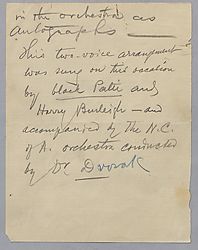 in the orchestra as
autographs
This two-voice arrangement
was sung on this occasion
by black Patti and
Harry Burleigh — and
accompanied by the N.C.
of A. orchestra conducted
by Dr Dvorak